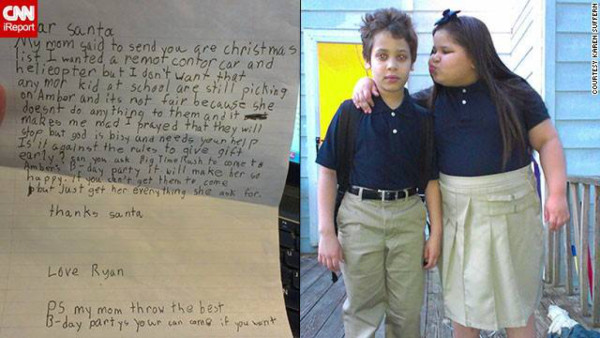 CNN
iReport
ar santa
My mom said to send you are christmas
list I wanted a remot contor car and
helicopter but I don't want that
any mor kid at school are still picking
on Amber and its not fair because she
doesnt do anything to them and it
makes me mad I prayed that they will
stop but god is bisy and needs your help
Is it against the rules to give gift
early? Can you ask Big Time Rush to come to
Amber's B-day party it will make her so
happy. If you can't get them to come
but Just get her everything she ask for.
thanks santa
Love Ryan
PS my mom throw the best
B-day partys your can come if you want
COURTESY KAREN SUFFERN